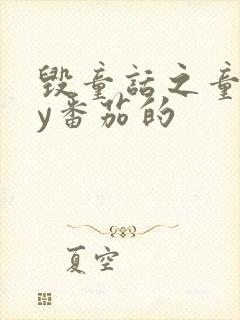 毁童话之童
y番茄的
夏空